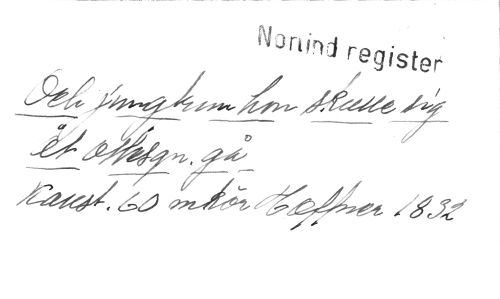 Nonind register
Och jungfrun hon skulle sig
åt ottesgn. gå
Kaust. 60 mkör Hæffner 1832